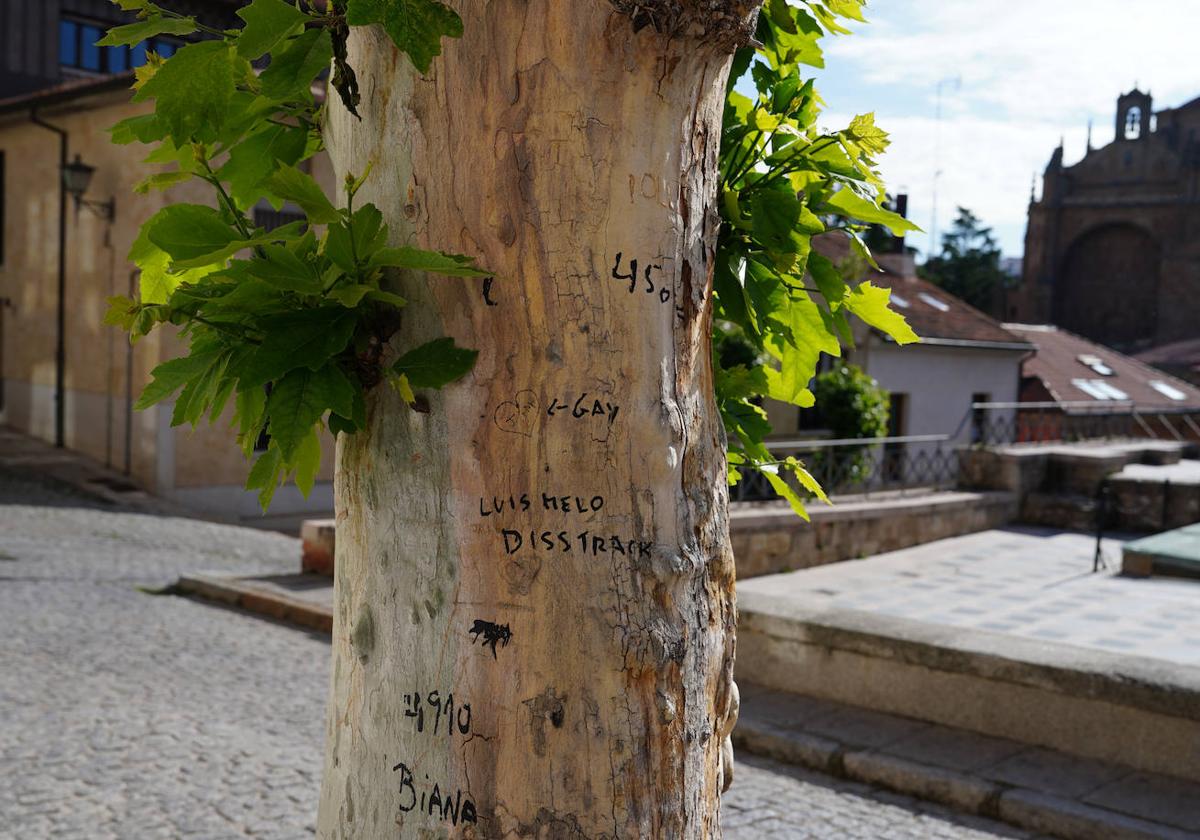 450
<-GAY
LUIS MELO
DISSTRACK
4910
BiANA